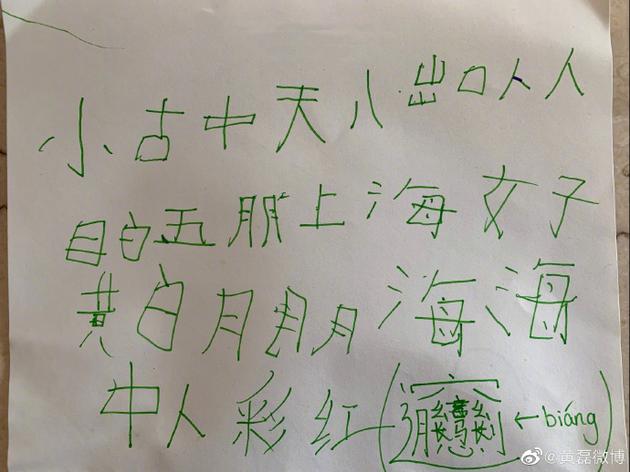 小古中天八出口人人
目白五朋上海女子
黄白月月月海海
中人彩红(𰻞←biáng)
@黄磊微博